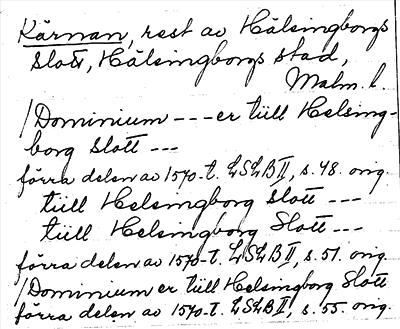 Kärnan, rest av Hälsingborgs
slott, Hälsingborgs stad,
Malm. l.
/Dominium --- er till Helsing-
borg slott ---
förra delen av 1570-t. LSLB II, s. 48. orig.
till Helsingborg slott ---
till Helsingborg Slott ---
förra delen av 1570-t. LSLB II, s. 51. orig.
/Dominium er till Helsingborg Slott
förra delen av 1570-t. LSLB II, s. 55. orig.